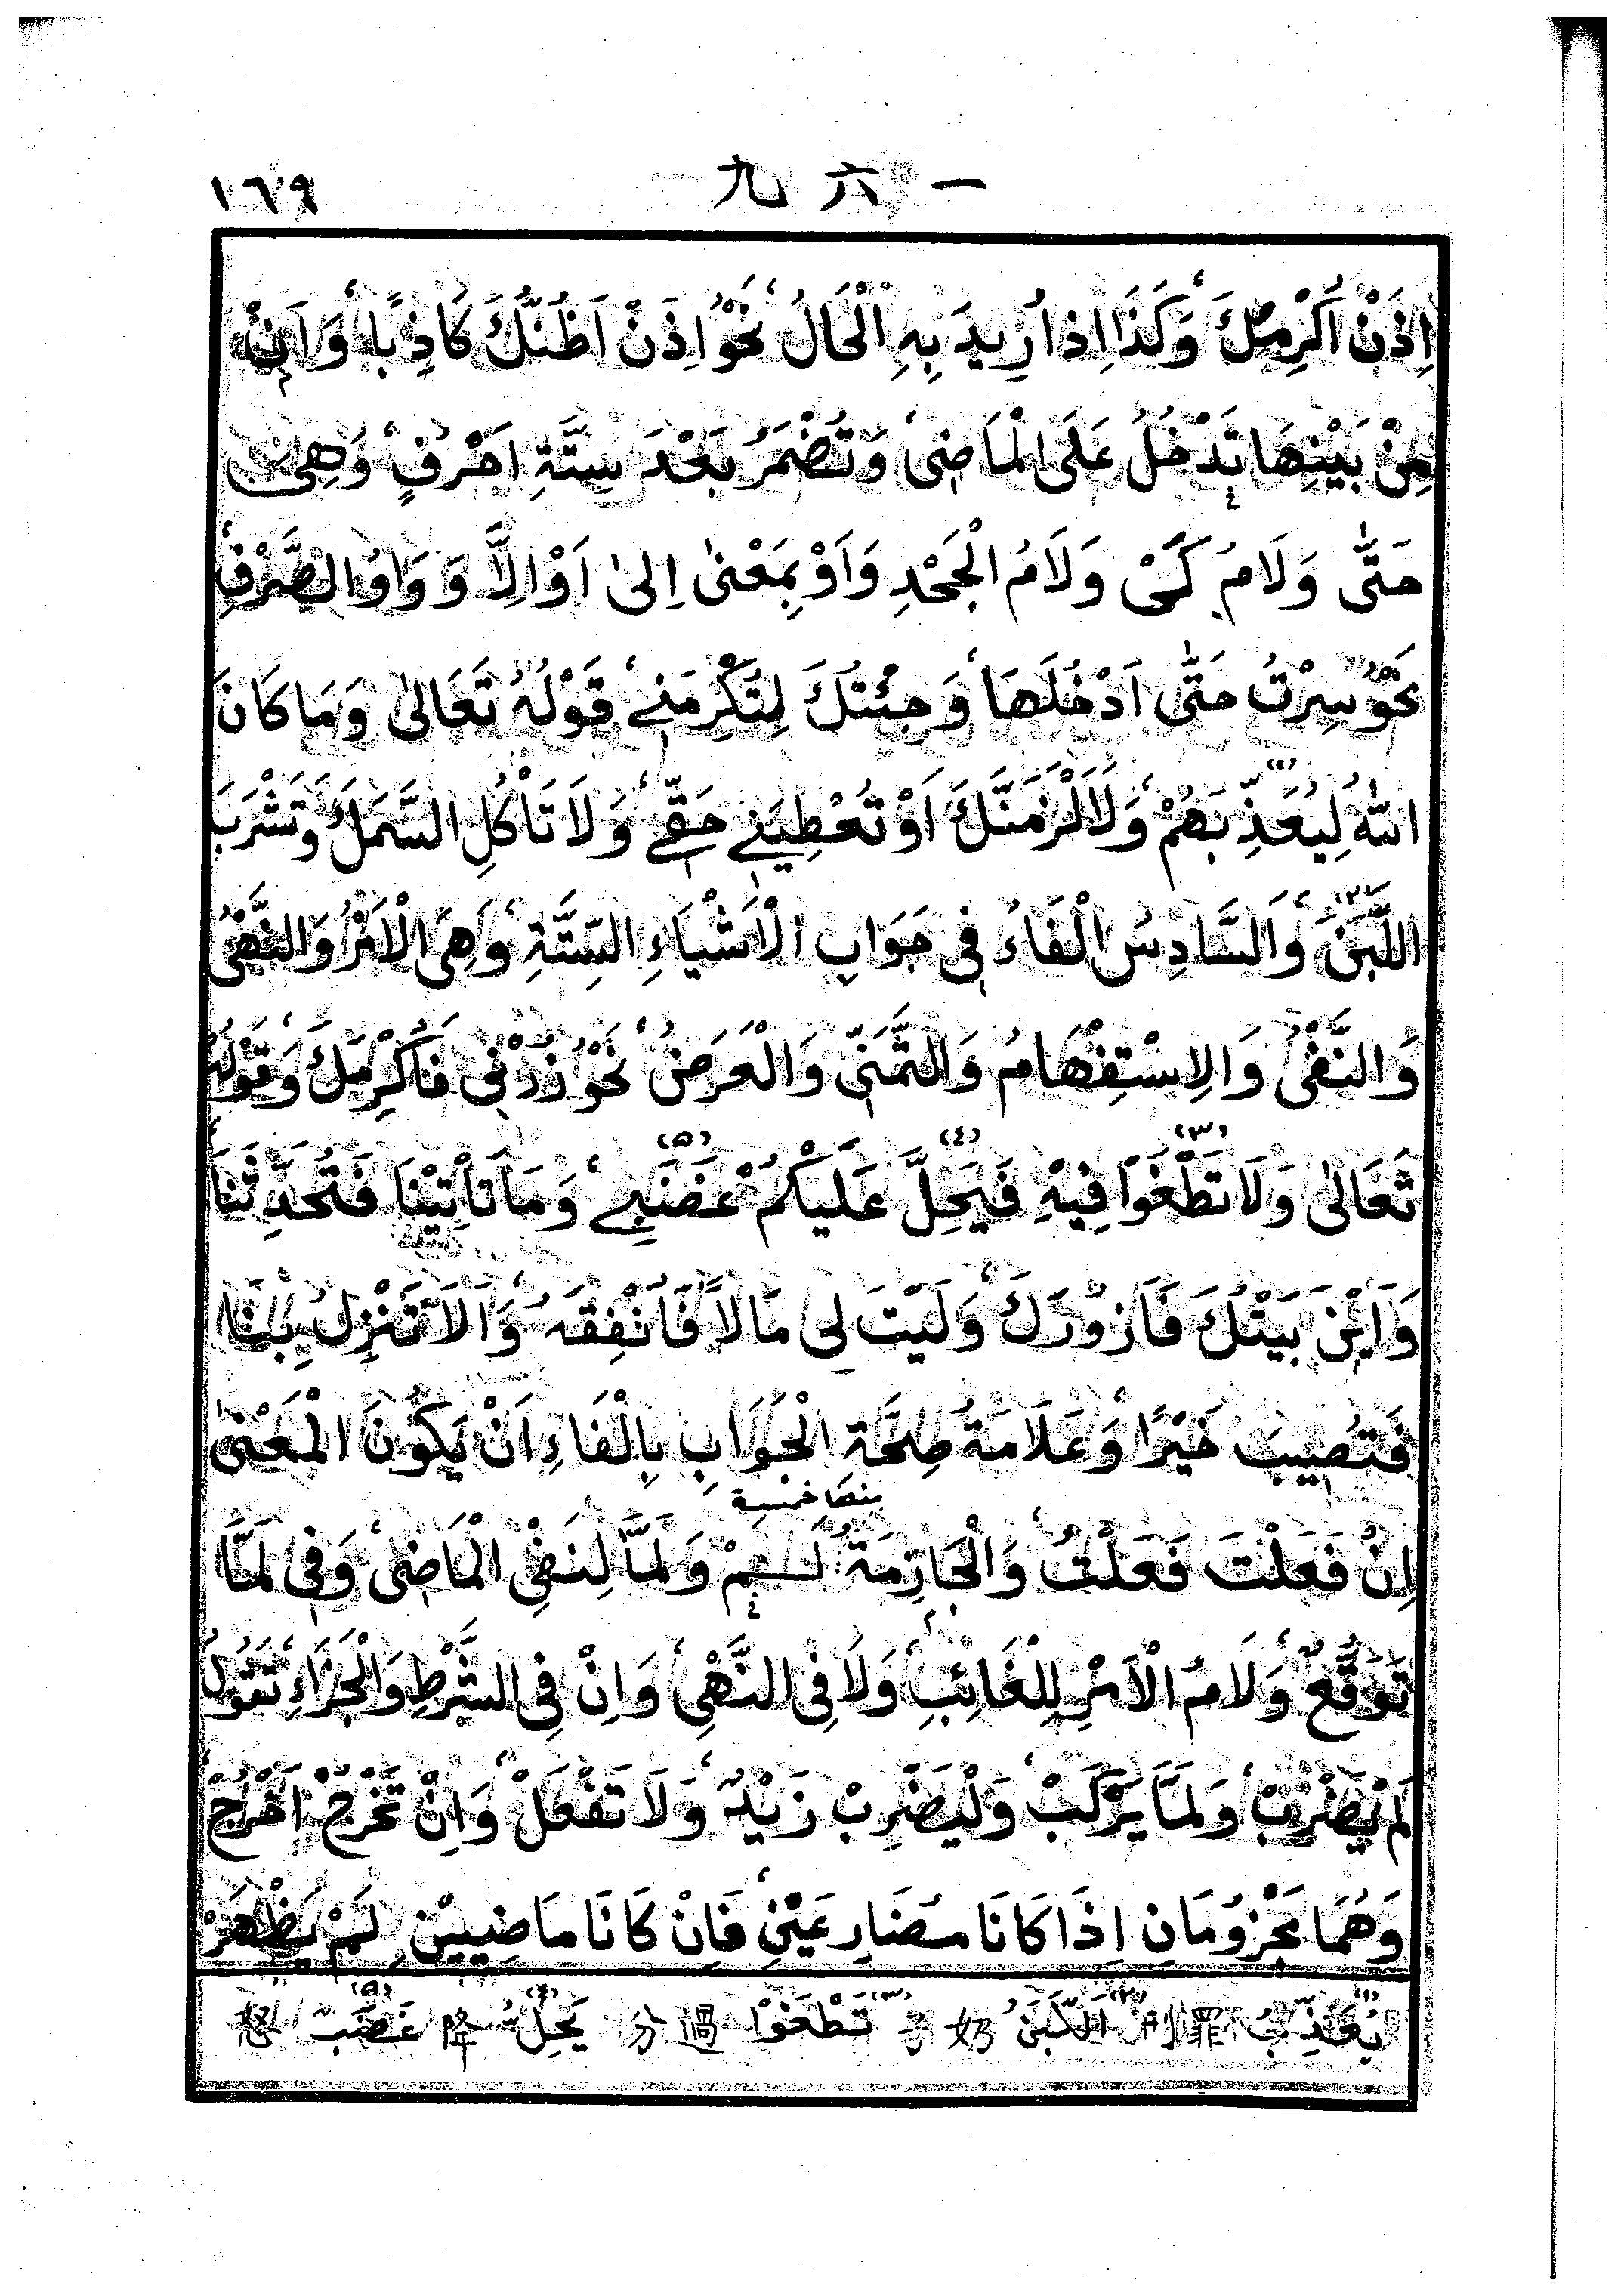 ١٦٩ 一六九
اِذَنْ اُكْرِمُكَ، وَكَذَا اِذَا اُرِيدَ بِهِ الْحَالُ، نَحْوُ اِذَنْ اَظُنُّكَ كَاذِبًا، وَاَنْ
مِنْ بَيْنِهَا تَدْخُلُ عَلَى الْمَاضِى، وَتُضْمَرُ بَعْدَ سِتَّةِ اَحْرُفٍ، وَهِىَ
حَتّٰى وَلَامُ كَىْ وَلَامُ الْجَحْدِ وَاَوْ بِمَعْنٰى اِلىٰ اَوْ اِلَّا وَ وَاوُ الصَّرْفِ،
نَحْوُ سِرْتُ حَتّٰى اَدْخُلَهَا، وَجِئْتُكَ لِتُكْرِمَنِے، قَوْلُهُ تَعَالىٰ وَمَا كَانَ
اللّٰهُ لِيُعَذِّبَهُمْ (١)، وَلَاَلْزَمَنَّكَ اَوْ تُعْطِيَنِے حَقِّے، وَلَا تَاْكُلِ السَّمَكَ وَتَشْرَبَ
اللَّبَنَ (٢)، وَالسَّادِسُ الْفَاءُ فِى جَوَابِ الْاَشْيَاءِ السِّتَّةِ، وَهِىَ الْاَمْرُ وَالنَّهْىُ
وَالنَّفْىُ وَالِاسْتِفْهَامُ وَالتَّمَنِّى وَالْعَرَضُ، نَحْوُ زُرْنِى فَاُكْرِمَكَ، وَقَوْلُهُ
تَعَالىٰ وَلَا تَطْغَوْا (٣) فِيْهِ فَيَحِلَّ (٤) عَلَيْكُمْ غَضَبِے (٥)، وَمَا تَاْتِيْنَا فَتُحَدِّثَنَا،
وَاَيْنَ بَيْتُكَ فَاَزُوْرَكَ، وَلَيْتَ لِى مَالًا فَاُنْفِقَهُ، وَاَلَا تَنْزِلُ بِنَا
فَتُصِيبَ خَيْرًا، وَعَلَامَةُ صِحَّةِ الْجَوَابِ بِالْفَاءِ اَنْ يَكُوْنَ الْمَعْنٰى
اِنْ فَعَلْتَ فَعَلْتُ، وَالْجَازِمَةُ لَمْ وَلَمَّا لِنَفْىِ الْمَاضِى، وَفِى لَمَّا
تَوَقُّعٌ، وَلَامُ الْاَمْرِ لِلْغَائِبِ، وَلَا فِى النَّهْىِ، وَاِنْ فِى الشَّرْطِ وَالْجَزَاءِ، تَقُوْلُ
لَمْ يَضْرِبْ، وَلَمَّا يَرْكَبْ، وَلْيَضْرِبْ زَيْدٌ، وَلَا تَفْعَلْ، وَاِنْ تَخْرُجْ اَخْرُجْ،
وَهُمَا مَجْزُومَانِ اِذَا كَانَا مُضَارِعَيْنِ، فَاِنْ كَانَا مَاضِيَيْنِ لَمْ يَظْهَرْ
(١) يُعَذِّبُ 罪刑 (٢) اَللَّبَنُ 奶子 (٣) تَطْغَوْا 過分 (٤) يَحِلُّ 降 (٥) غَضَبٌ 怒